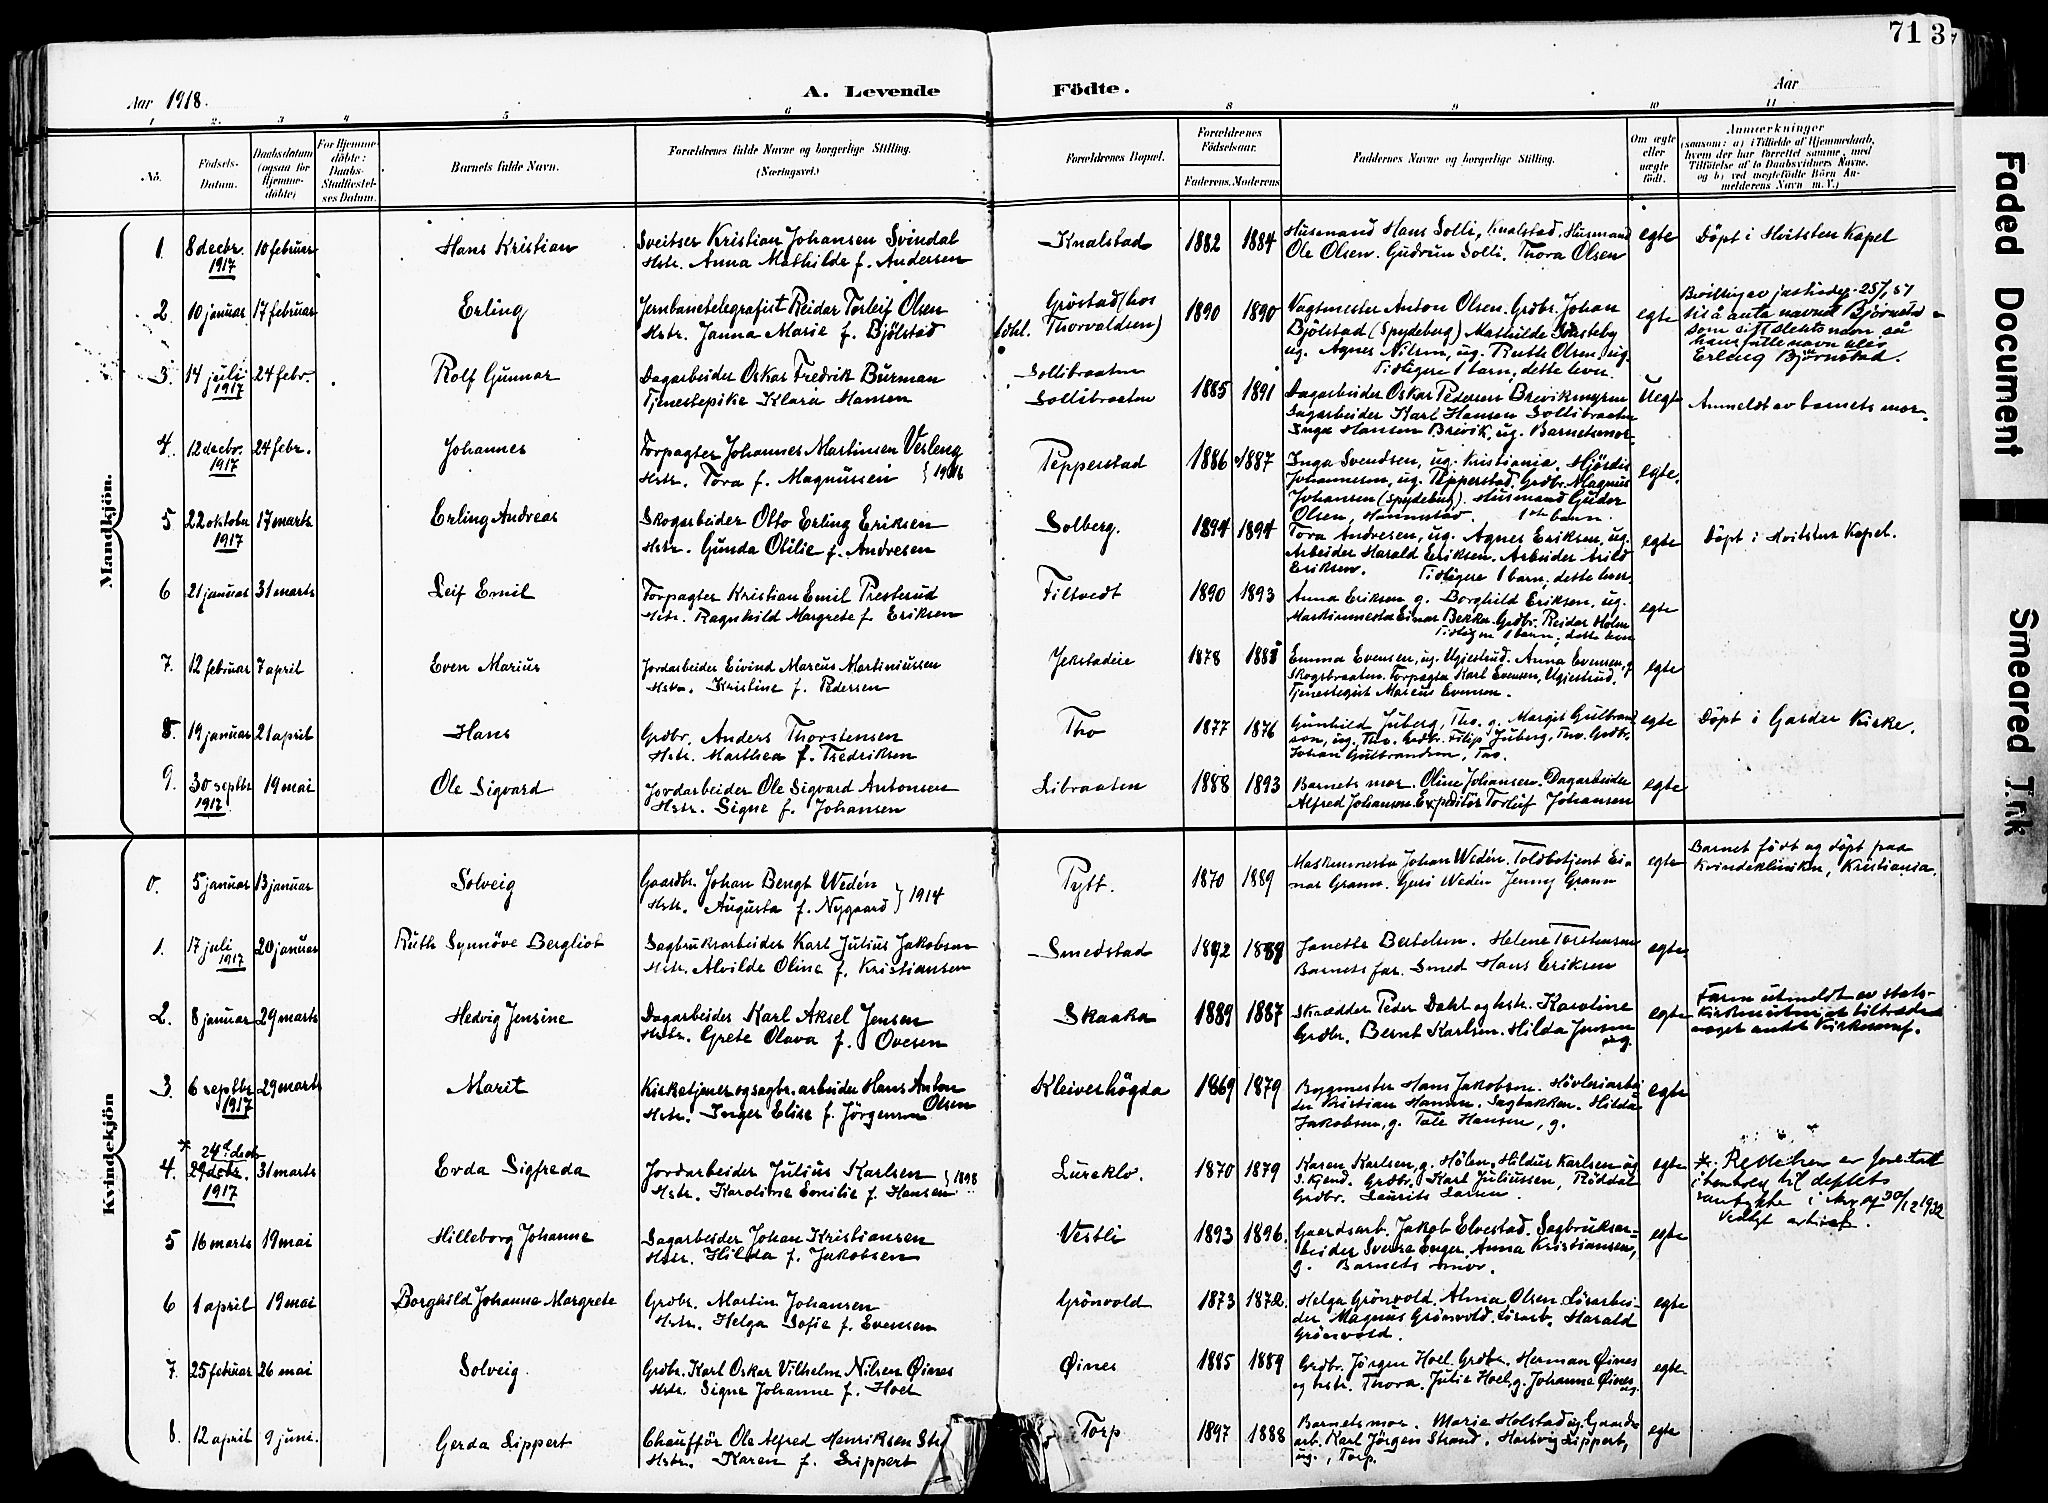 71 3
Aar 1918.
A. Levende Födte.
Aar
1 2. 3 4 5 6 8 9 10 11
No.
Födsels-Datum.
Daabsdatum (ogsaa for Hjemme-döbte)
For Hjemme-döbte: Daabs-Stadfæstel-ses Datum.
Barnets fulde Navn.
Forældrenes fulde Navne og borgerlige Stilling. (Næringsvei.)
Forældrenes Bopæl.
Forældrenes Födselsaar.
Faderens. Moderens
Faddernes Navne og borgerlige Stilling.
Om ægte eller uægte födt.
Anmærkninger
(saasom: a) i Tilfælde af Hjemmedaab, hvem der har forrettet samme, med Tilföielse af to Daabsvidners Navne, og b) ved uegtefödte Börn An-melderens Navn m. V.)
Mandkjön.
1. 8 decbr. 1917 10 februar Hans Kristian
Sveitser Kristian Johansen Svindal
Hstr. Anna Mathilde f. Andersen
Knalstad 1882 1884
Husmand Hans Solli, Knalstad. Husmand
Ole Olsen. Gudrun Solli. Thora Olsen
egte Döpt i Hvitsten Kapel
2 10 januar 17 februar Erling
Jernbanetelegrafist Reidar Torleif Olsen
Hstr. Janna Marie f. Bjölstad
Gröstad (hos Thorvaldsen) 1890 1890
Vagtmester Anton Olsen. Grdbr. Johan
Bjölstad (Spydeberg) Mathilde
ug. Agnes Nilsen, ug. Ruth Olsen, ug.
Tidligere 1 barn, dette lever.
egte
til å anta navnet Bjørnstad
som sitt slektsnavn så
hans fulle navn blir
Erling Bjørnstad.
3. 14 juli 1917 24 febr. Rolf Gunnar
Dagarbeider Oskar Fredrik Burman
Tjenestepike Klara Hansen
Sollibraaten
Sollibraaten 1885 1891
Dagarbeider Oskar Pedersen Brevikmyren
Dagarbeider Karl Hansen Sollibraaten
Inga Hansen Brevik, ug. Barnets mor.
Uegte Anmeldt av barnets mor.
4. 12 decbr. 1917 24 febr. Johannes
Forpagter Johannes Martinsen Vesleng
Hstr. Tora f. Magnussen } 1916
Pepperstad 1886 1887
Inga Svendsen, ug. Kristiania. Hjördis
Johannesen, ug. Pepperstad. Grdbr. Magnus
Johansen (Spydeberg). Husmand Gulder
Olsen, Hannestad. 1ste barn.
egte.
5 22 oktober 1917 17 marts Erling Andreas
Skogarbeider Otto Erling Eriksen
Hstr. Gunda Otilie f. Andresen
Solberg. 1894 1894
Tora Andresen, ug. Agnes Eriksen, ug.
Arbeider Harald Eriksen. Arbeider Arild
Eriksen. Tidligere 1 barn, dette lever
egte Döpt i Hvitsten Kapel.
6 21 januar 31 marts Leif Emil
Forpagter Kristian Emil Presterud
Hstr. Ragnhild Margrete f. Eriksen
Filtvedt 1890 1893
Anna Eriksen g. Borghild Eriksen, ug.
Maskinmester Einar Bekka. Grdbr. Reidar Holm
Tidligere 1 barn, dette lever
egte
7. 12 februar 7 april Even Marius
Jordarbeider Eivind Marcus Martiniussen
Hstr. Kristine f. Pedersen
Jekstadeie 1878
Emma Evensen, ug. Ugjestrud. Anna Evensen, g
Skogsbraaten. Forpagter Karl Evensen, Ugjestrud.
Tjenestegut Marcus Evensen.
egte
8. 19 januar 21 april Hans
Grdbr. Anders Thorstensen
Hstr. Marthea f. Fredriksen
Tho 1877 1876
Gunhild Juberg, Tho. g. Margit Gulbrand
sen, ug. Tho. Grdbr. Filip Juberg, Tho. Grdbr.
Johan Gulbrandsen, Tho.
egte Döpt i Garder Kirke.
9. 30 septbr 1917 19 mai Ole Sigvard
Jordarbeider Ole Sigvard Antonsen
Hstr. Signe f. Johansen
Libraaten 1888 1893
Barnets mor. Oline Johansen. Dagarbeider
Alfred Johansen. Expeditör Torleif Johansen
egte
Kvindekjön
0. 5 januar 13 januar Solveig
Gaardbr. Johan Bengt Wedén
Hstr. Augusta f. Nygaard } 1914
Pytt. 1870 1889
Maskinmester Johan Wedén. Toldbetjent Ei-
nar Grann. Gusi Wedén Jenny Grann
egte
Barnet födt og döpt paa
Kvindekliniken, Kristiania.
1. 17 juli 1917 20 januar Ruth Synnöve Bergliot
Sagbruksarbeider Karl Julius Jakobsen
Hstr. Alvilde Oline f. Kristiansen
Smedstad 1892 1889
Janette Bertelsen. Helene Torstensen
Barnets far. Smed Hans Eriksen
egte
2. 8 januar 29 marts Hedvig Jensine
Dagarbeider Karl Aksel Jensen
Hstr. Grete Olava f. Ovesen
Skaaka 1889 1887
Skrædder Peder Dahl og hstr. Karoline
Grdbr. Bernt Karlsen. Hilda Jensen
ug.
egte
Faren utmeldt av stats-
kirken uten at tiltræde
noget andet kirkesamf.
3. 6 septbr 1917 29 marts Marit
Kirketjener og sagbr.arbeider Hans Anton Olsen
Hstr. Inger Elise f. Jörgensen
Kleiverhögda 1869 1879
Bygmester Hans Jakobsen. Hövleriarbei
der Kristian Hansen. Sagbakken. Hilda
Jakobsen, g. Tale Hansen, g.
egte
* 24de decbr.
4. 29 decbr. 1917 31 marts Evda Sigfreda
Jordarbeider Julius Karlsen
Hstr. Karoline Emilie f. Hansen } 1898
Lureklv. 1870 1879
Karen Karlsen, g. Hölen. Hildur Karlsen ug
Skjend. Grdbr. Karl Juliussen, Röddal
Grdbr. Laurits Larsen.
egte
*. Rettelsen er foretatt
i henhold til deptets
samtykke i skr. af 30/12 1932
vedlagt arkivet.
5 16 marts 19 mai Hilleborg Johanne
Dagarbeider Johan Kristiansen
Hstr. Hilda f. Jakobsen
Vestli 1893 1896.
Gaardsarb. Jakob Elvestad. Sagbruksar-
beider Sverre Enger. Anna Kristiansen,
g. Barnets mor.
egte
6 1 april 19 mai Borghild Johanne Margrete
Grdbr. Martin Johansen
Hstr. Helga Sofie f. Evensen
Grönvold 1873 1872.
Helga Grönvold. Alma Olsen. Lörarbei-
der Magnus Grönvold. Lörarb. Harald
Grönvold.
egte
7. 25 februar 26 mai Solveig
Grdbr. Karl Oskar Vilhelm Nilsen Øines
Hstr. Signe Johanne f. Hoel
Øines 1885 1889
Grdbr. Jörgen Hoel. Grdbr. Herman Øines
og hstr. Thora. Julie Hoel, g. Johanne Øines
ug.
egte
8. 12 april 9 juni. Gerda Lippert
Chaufför Ole Alfred Henriksen
Hstr. Karen f. Lippert
Torp 1897 1888
Barnets mor. Marie Holstad ug. Gaards-
arb. Karl Jörgen Strand. Hartvig Lippert,
ug., Torp.
egte
Faded Document
Smeared Ink